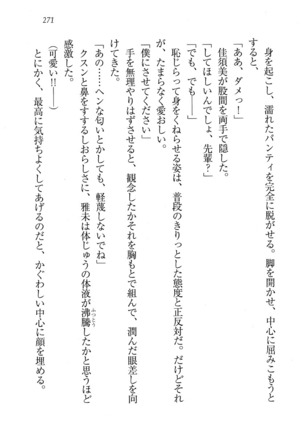 271
身を起こし、濡れたパンティを完全に脱がせる。脚を開かせ、中心に屈みこもうと
すると、
「ああ、ダメっ！」
佳須美が股間を両手で隠した。
「してほしいんでしょ、先輩？」
「だって……」
恥じらって身をくねらせる姿は、普段のきりっとした態度と正反対だ。だけどそれ
が、たまらなく愛おしい。
「僕にさせてください」
手を無理やりはずさせると、観念したかそれを胸もとで組んで、潤んだ眼差しを向
けてきた。
「あの……ヘンな匂いとかしても、軽蔑しないでね」
クスンと鼻をすするしおらしさに、雅未は体じゅうの体液が沸騰したかと思うほど
感激した。
（可愛い！！――）
とにかく、最高に気持ちよくしてあげるのだと、かぐわしい中心に顔を埋める。